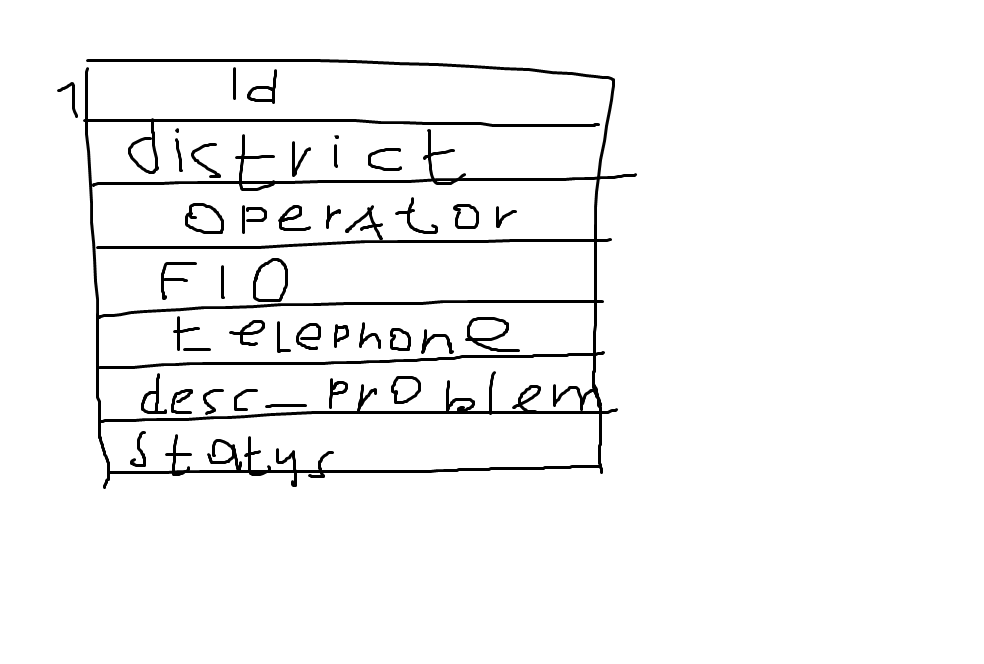 1 Id
district
operator
FIO
telephone
desc_problem
statys